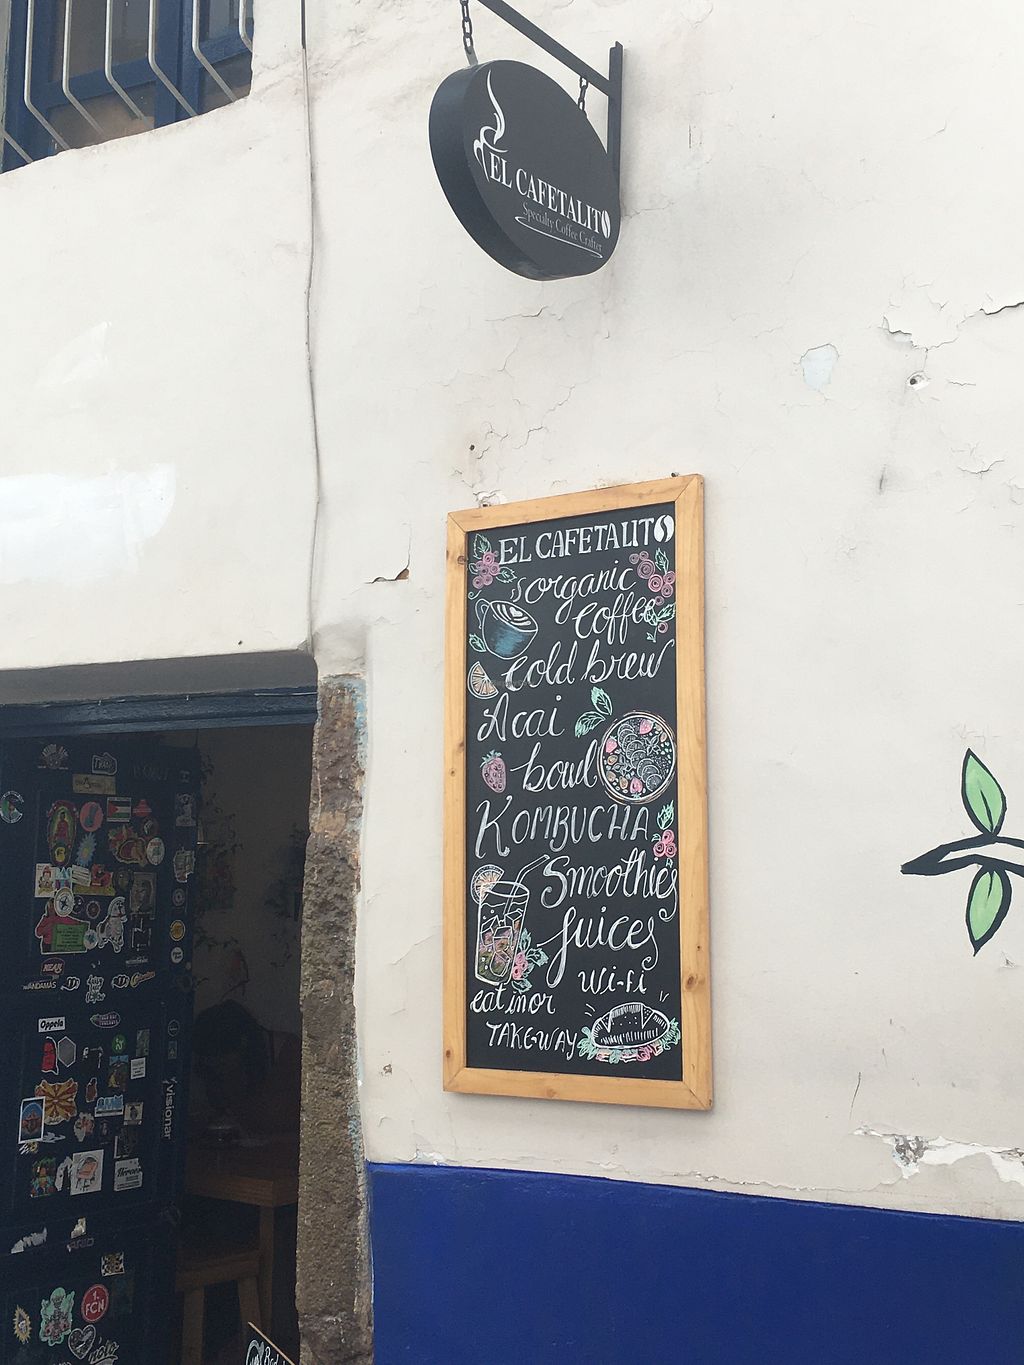 EL CAFETALITO
Specialty Coffee Crafter
EL CAFETALITO
organic
coffee
cold brew
Acai
bowl
KOMBUCHA
Smoothies
Juices
Wi-Fi
eat in or
TAKE-WAY
Oppela
Visionar
1. FCN